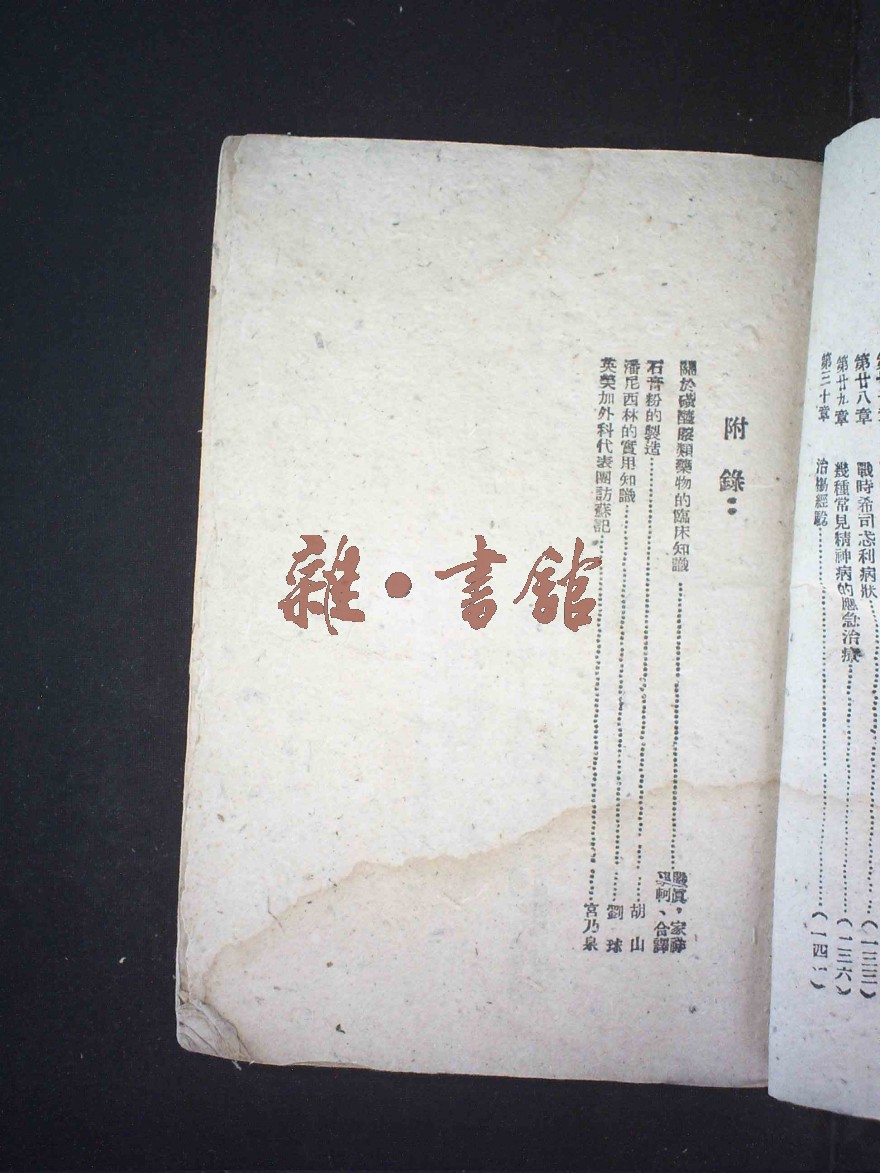 第廿八章 戰時希司忒利病狀……(一三三)
第廿九章 幾種常見精神病的應急治療……(一三六)
第三十章 治瘍經驗……(一四一)
附錄：
關於磺醯胺類藥物的臨床知識……
石膏粉的製造……胡山
潘尼西林的實用知識……劉球
英美加外科代表團訪蘇記……宮乃泉
雜·書館